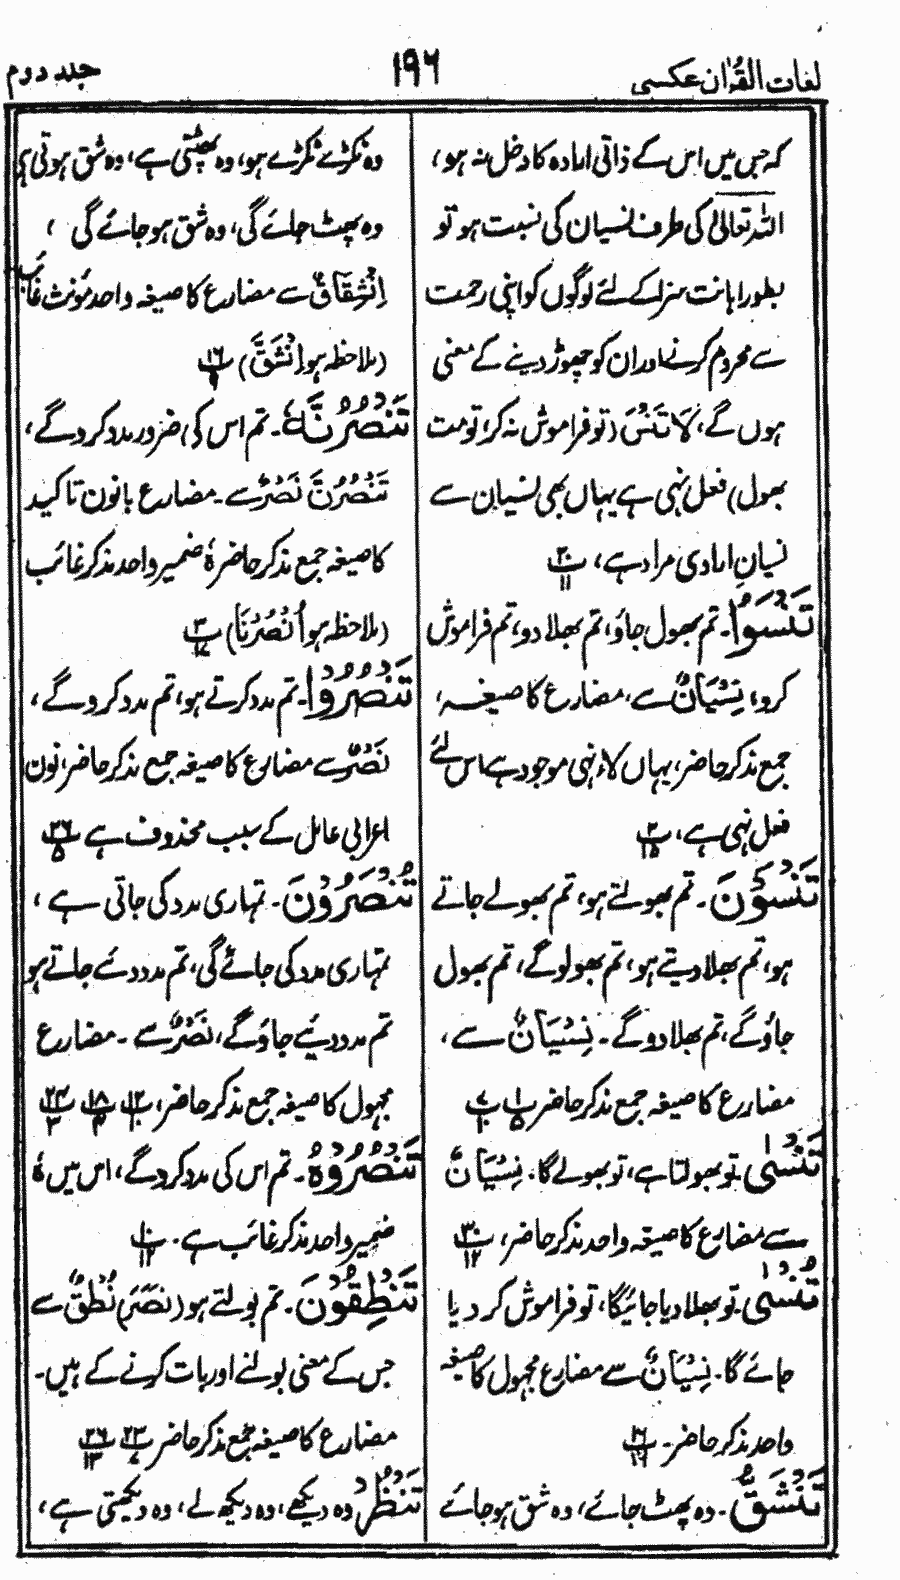 لغات القرآن عکسی
۱۹۶
جلد دوم
کہ جس میں اس کے ذاتی ارادہ کا دخل نہ ہو،
اللہ تعالیٰ کی طرف نسیان کی نسبت ہو تو
بطور اہانت سزا کے لئے لوگوں کو اپنی رحمت
سے محروم کرنے اور ان کو چھوڑ دینے کے معنی
ہوں گے، لَا تَنْسَ (تو فراموش نہ کر، تو مت
بھول) فعل نہی ہے یہاں بھی نسیان سے
نسیانِ ارادی مراد ہے، ۲۰/۱۱
تَنْسَوُا۔ تم بھول جاؤ، تم بھلا دو، تم فراموش
کرو، نِسْیَانٌ سے، مضارع کا صیغہ،
جمع مذکر حاضر، یہاں لاء نہی موجود ہے اس لئے
فعل نہی ہے، ۲/۱۵
تَنْسَوْنَ۔ تم بھولتے ہو، تم بھولے جاتے
ہو، تم بھلا دیتے ہو، تم بھولو گے، تم بھول
جاؤ گے، تم بھلا دو گے۔ نِسْیَانٌ سے،
مضارع کا صیغہ جمع مذکر حاضر ۱/۵ ۷/۱۰
تَنْسٰی۔ تو بھولتا ہے، تو بھولے گا۔ نِسْیَانٌ
سے مضارع کا صیغہ واحد مذکر حاضر، ۳۰/۱۲
تُنْسٰی۔ تو بھلا دیا جائیگا، تو فراموش کر دیا
جائے گا۔ نِسْیَانٌ سے مضارع مجہول کا صیغہ
واحد مذکر حاضر۔ ۱۶/۱۶
تَنْشَقُّ۔ وہ پھٹ جائے، وہ شق ہو جائے
وہ ٹکڑے ٹکڑے ہو، وہ پھٹتی ہے، وہ شق ہوتی ہی
وہ پھٹ جائے گی، وہ شق ہو جائے گی،
اِنْشِقَاقٌ سے مضارع کا صیغہ واحد مؤنث غائب
(ملاحظہ ہو اِنْشَقَّ) ۱۶/۹
تَنْصُرُنَّہٗ۔ تم اس کی ضرور مدد کرو گے،
تَنْصُرُنَّ نَصْرٌ سے۔ مضارع بانون تاکید
کا صیغہ جمع مذکر حاضر ہٗ ضمیر واحد مذکر غائب
(ملاحظہ ہو اُنْصُرْنَا) ۳/۱۷
تَنْصُرُوْا۔ تم مدد کرتے ہو، تم مدد کرو گے،
نَصْرٌ سے مضارع کا صیغہ جمع مذکر حاضر، نون
اعرابی عامل کے سبب محذوف ہے ۲۶/۵
تُنْصَرُوْنَ۔ تمہاری مدد کی جاتی ہے،
تمہاری مدد کی جائے گی، تم مدد دئے جاتے ہو
تم مدد دئیے جاؤ گے، نَصْرٌ سے۔ مضارع
مجہول کا صیغہ جمع مذکر حاضر، ۱۲/۱۰ ۱۸/۴ ۲۳/۳
تَنْصُرُوْہُ۔ تم اس کی مدد کرو گے، اس میں ہٗ
ضمیر واحد مذکر غائب ہے۔ ۱۰/۱۲
تَنْطِقُوْنَ۔ تم بولتے ہو (نَصَرَ) نُطْقٌ سے
جس کے معنی بولنے اور بات کرنے کے ہیں۔
مضارع کا صیغہ جمع مذکر حاضر ۲۳/۷ ۲۶/۱۳
تَنْظُرْ وہ دیکھے، وہ دیکھ لے، وہ دیکھتی ہے،